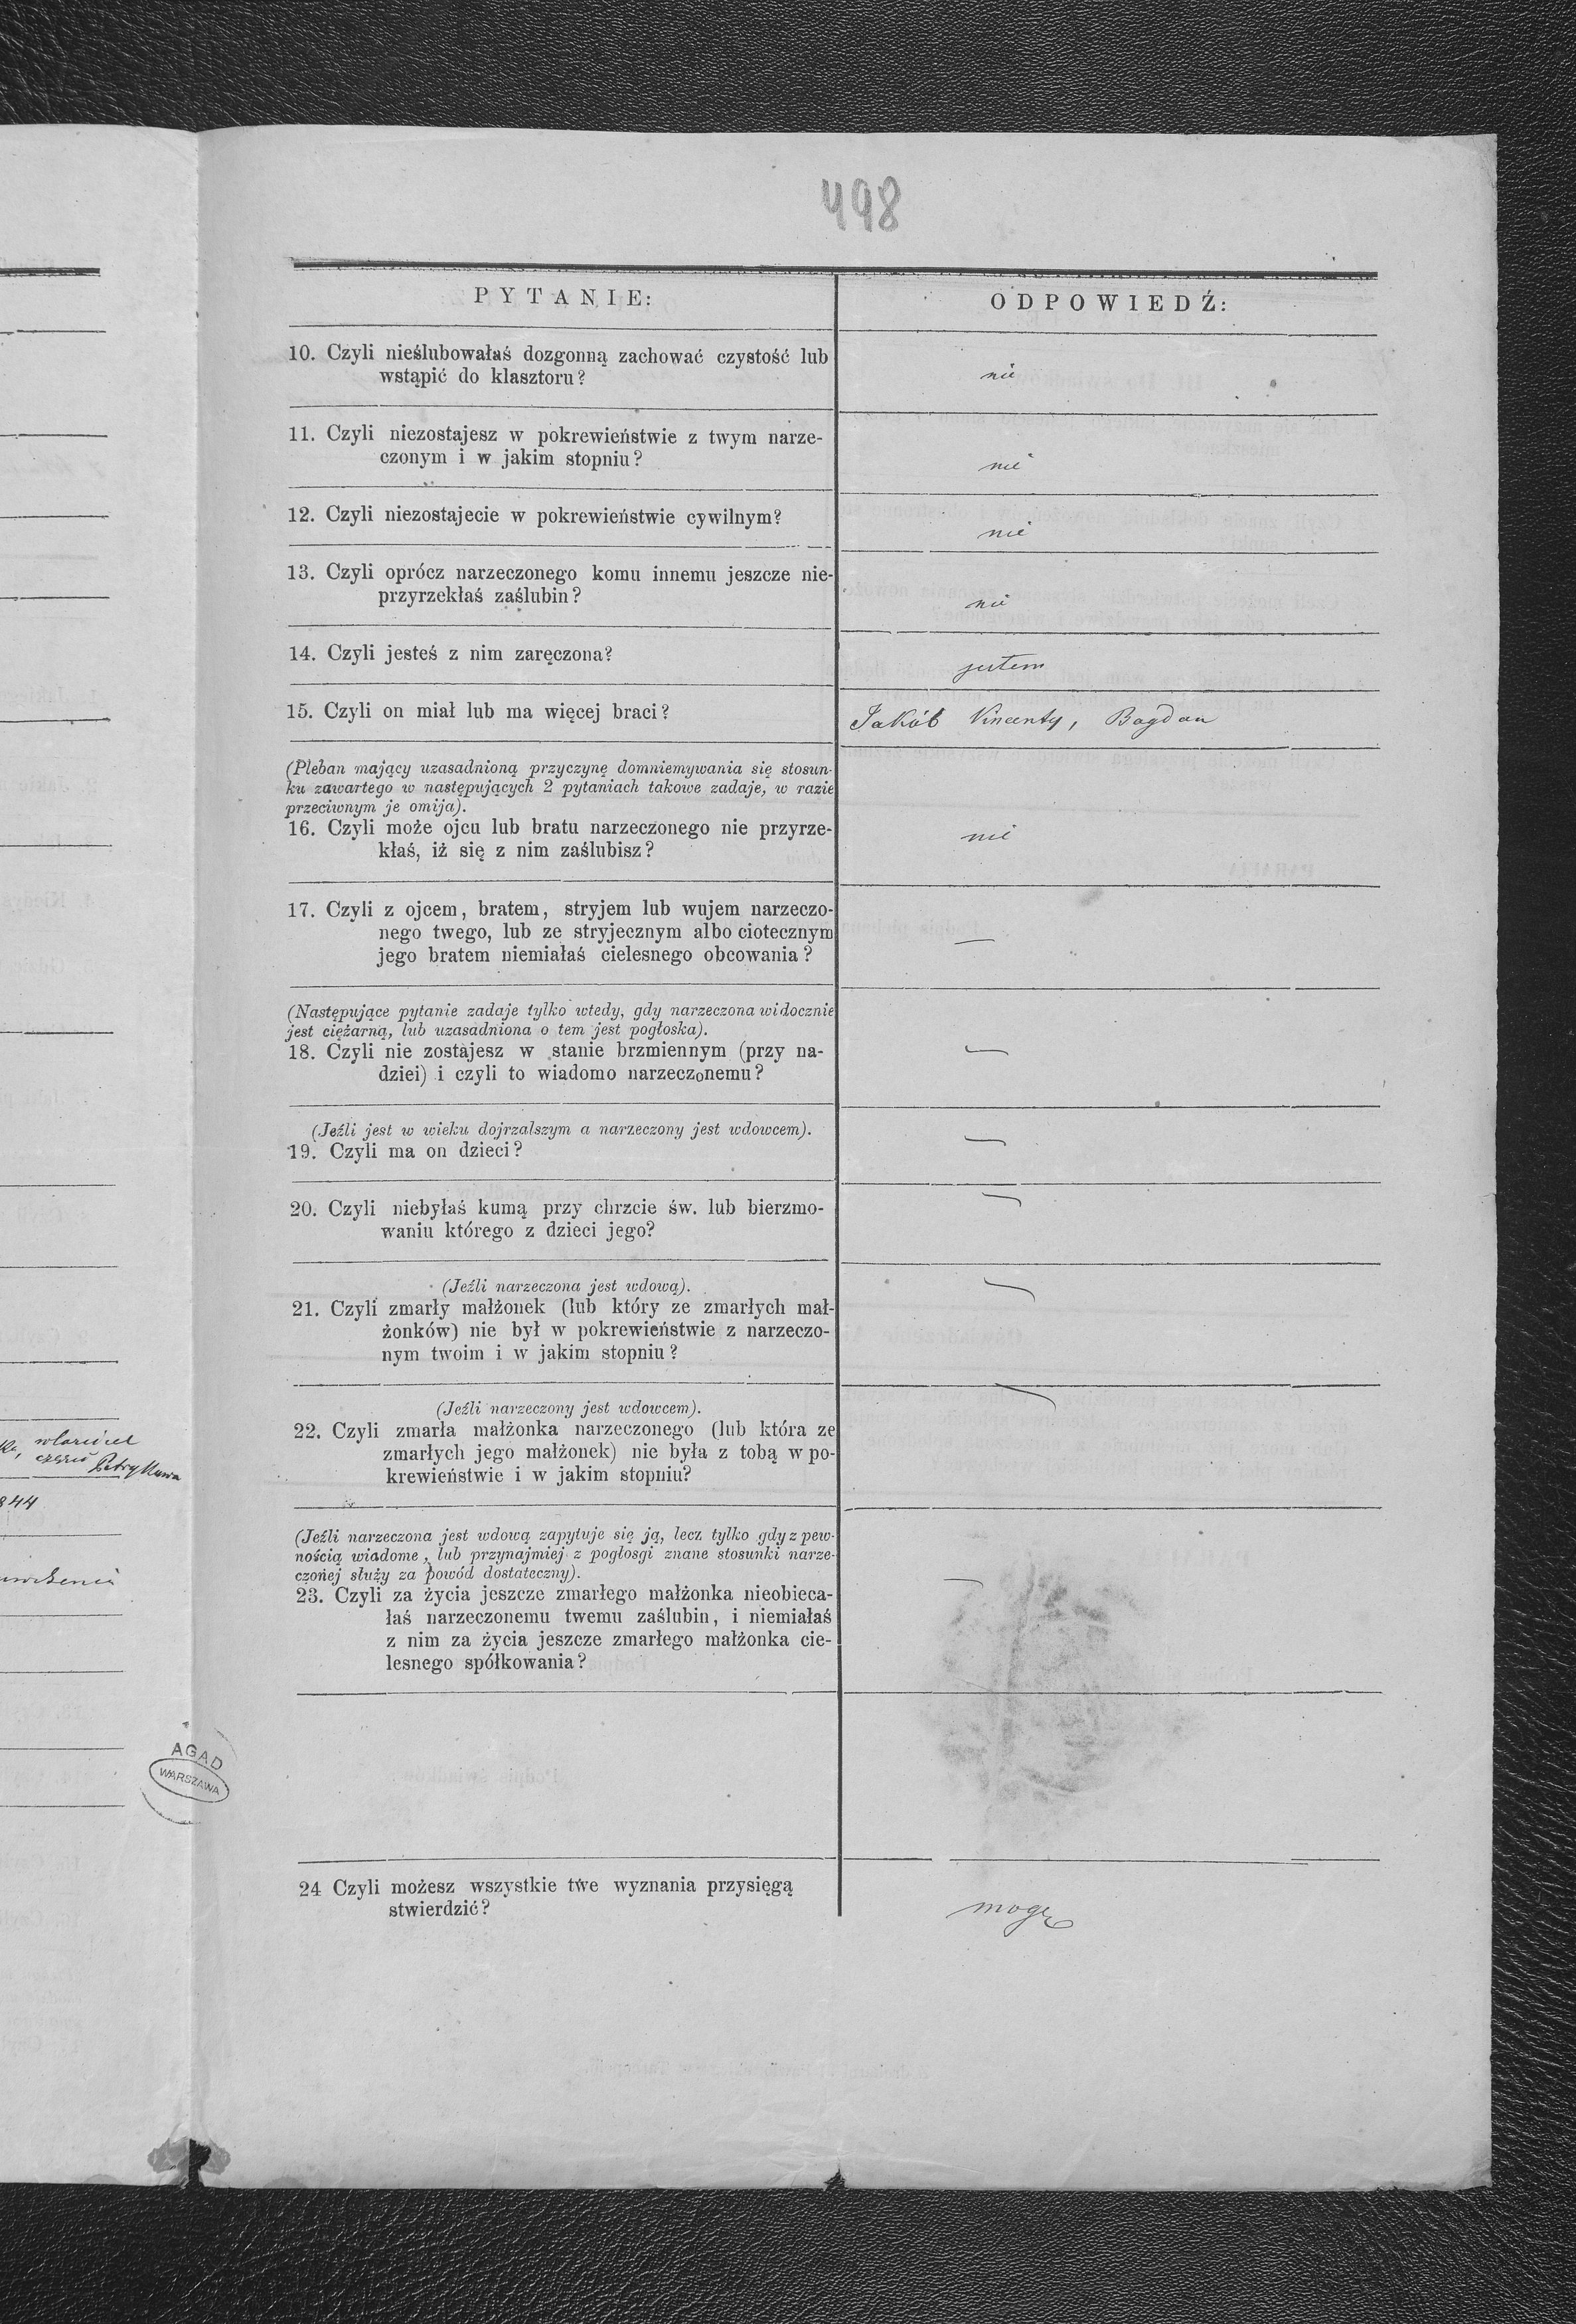 498
PYTANIE:
ODPOWIEDŹ:
10. Czyli nieślubowałaś dozgonną zachować czystość lub
wstąpić do klasztoru?
nie
11. Czyli niezostajesz w pokrewieństwie z twym narze-
czonym i w jakim stopniu?
nie
12. Czyli niezostajecie w pokrewieństwie cywilnym?
nie
13. Czyli oprócz narzeczonego komu innemu jeszcze nie-
przyrzekłaś zaślubin?
nie
14. Czyli jesteś z nim zaręczona?
jestem
15. Czyli on miał lub ma więcej braci?
Jakób Vincenty, Bogdan
(Pleban mający uzasadnioną przyczynę domniemywania się stosun-
ku zawartego w następujących 2 pytaniach takowe zadaje, w razie
przeciwnym je omija).
16. Czyli może ojcu lub bratu narzeczonego nie przyrze-
kłaś, iż się z nim zaślubisz?
nie
17. Czyli z ojcem, bratem, stryjem lub wujem narzeczo-
nego twego, lub ze stryjecznym albo ciotecznym
jego bratem niemiałaś cielesnego obcowania?
—
(Następujące pytanie zadaje tylko wtedy, gdy narzeczona widocznie
jest ciężarną, lub uzasadniona o tem jest pogłoska).
18. Czyli nie zostajesz w stanie brzmiennym (przy na-
dziei) i czyli to wiadomo narzeczonemu?
—
(Jeźli jest w wieku dojrzalszym a narzeczony jest wdowcem).
19. Czyli ma on dzieci?
—
20. Czyli niebyłaś kumą przy chrzcie św. lub bierzmo-
waniu którego z dzieci jego?
—
(Jeźli narzeczona jest wdową).
21. Czyli zmarły małżonek (lub który ze zmarłych mał-
żonków) nie był w pokrewieństwie z narzeczo-
nym twoim i w jakim stopniu?
—
(Jeźli narzeczony jest wdowcem).
22. Czyli zmarła małżonka narzeczonego (lub która ze
zmarłych jego małżonek) nie była z tobą w po-
krewieństwie i w jakim stopniu?
—
(Jeźli narzeczona jest wdową zapytuje się ją, lecz tylko gdy z pew-
nością wiadome, lub przynajmiej z pogłosgi znane stosunki narze-
czonej służy za powód dostateczny).
23. Czyli za życia jeszcze zmarłego małżonka nieobieca-
łaś narzeczonemu twemu zaślubin, i niemiałaś
z nim za życia jeszcze zmarłego małżonka cie-
lesnego spółkowania?
—
24 Czyli możesz wszystkie twe wyznania przysięgą
stwierdzić?
mogę
844
AGAD
WARSZAWA